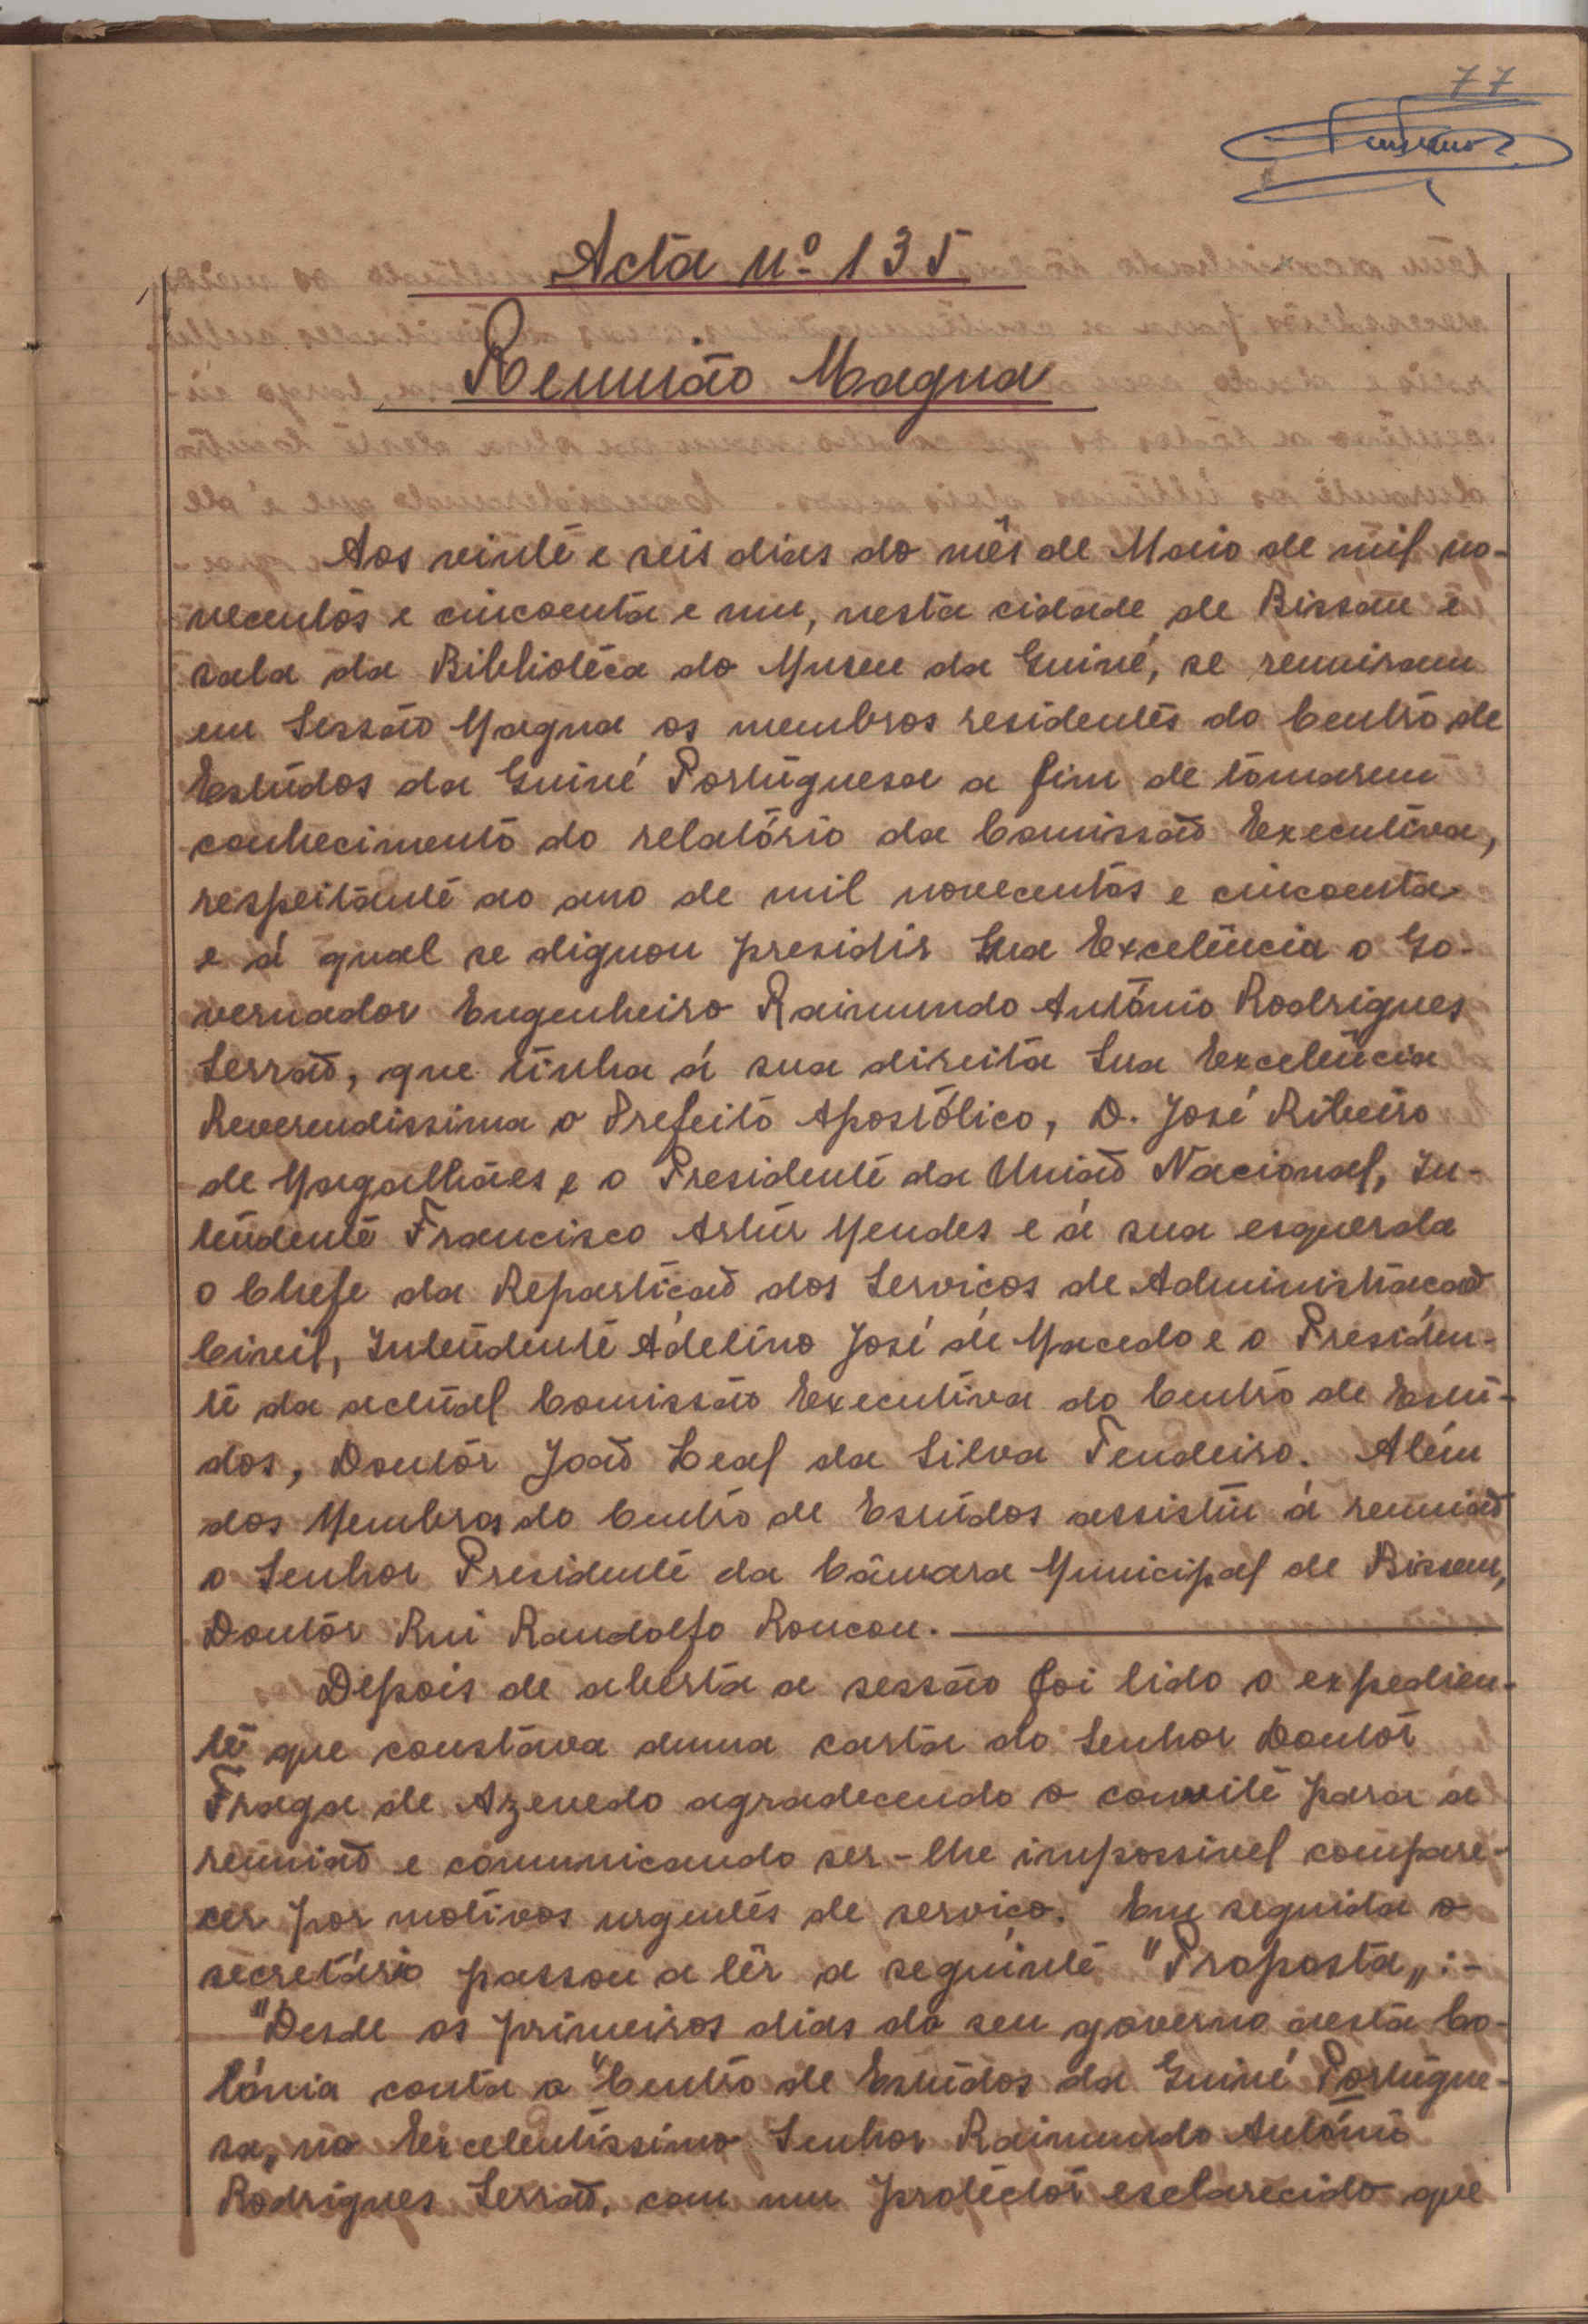 77
Acta nº 135
Reunião Magna
Aos vinte e seis dias do mês de Maio de mil no-
vecentos e cincoenta e um, nesta cidade de Bissau e
sala da Biblioteca do Museu da Guiné, se reuniram
em Sessão Magna os membros residentes do Centro de
Estudos da Guiné Portuguesa a fim de tomarem
conhecimento do relatório da Comissão Executiva,
respeitante ao ano de mil novecentos e cincoenta
e á qual se dignou presidir Sua Excelência o Go-
vernador Engenheiro Raimundo António Rodrigues
Serrão, que tinha á sua direita Sua Excelência
Reverendissima o Prefeito Apostólico, D. José Ribeiro
de Magalhães e o Presidente da União Nacional, In-
tendente Francisco Artur Mendes e á sua esquerda
o Chefe da Repartição dos Serviços de Administração
Civil, Intendente Adelino José de Macedo e o Presiden-
te da actual Comissão Executiva do Centro de Estu-
dos, Doutor João Leal da Silva Tendeiro. Além
dos Membros do Centro de Estudos assistiu á reunião
o Senhor Presidente da Câmara Municipal de Bissau,
Doutor Rui Randolfo Roncon.
Depois de aberta a sessão foi lido o expedien-
te que constava duma carta do Senhor Doutor
Fraga de Azevedo agradecendo o convite para a
reunião e comunicando ser-lhe impossivel compare-
cer por motivos urgentes de serviço. Em seguida o
secretário passou a lêr a seguinte "Proposta„:-
"Desde os primeiros dias do seu governo nesta Co-
lónia conta o "Centro de Estudos da Guiné Portugue-
sa„ no Excelentissimo Senhor Raimundo António
Rodrigues Serrão, com um protector esclarecido que